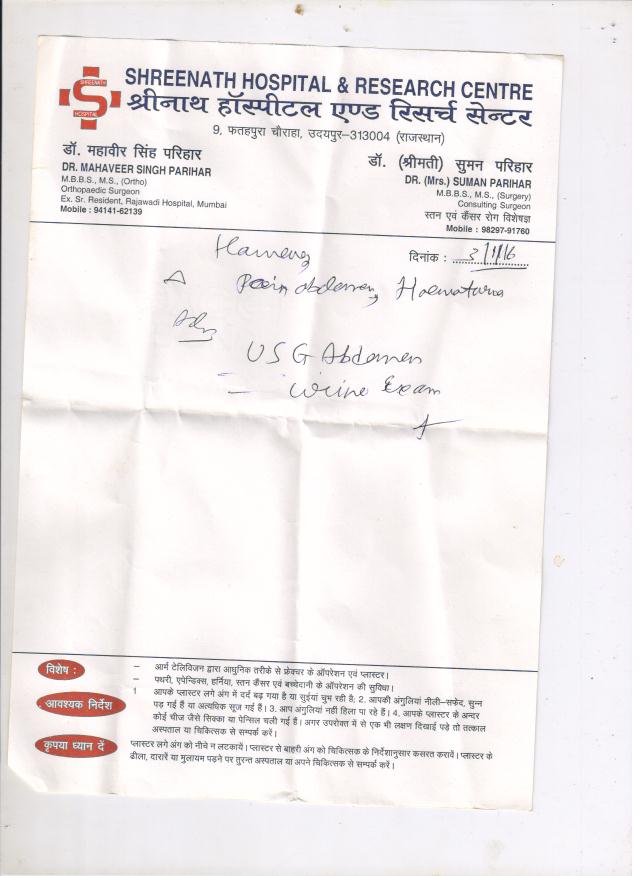 SHREENATH
S
HOSPITAL
SHREENATH HOSPITAL & RESEARCH CENTRE
श्रीनाथ हॉस्पीटल एण्ड रिसर्च सेन्टर
9, फतहपुरा चौराहा, उदयपुर–313004 (राजस्थान)
डॉ. महावीर सिंह परिहार
DR. MAHAVEER SINGH PARIHAR
M.B.B.S., M.S., (Ortho)
Orthopaedic Surgeon
Ex. Sr. Resident, Rajawadi Hospital, Mumbai
Mobile : 94141-62139
डॉ. (श्रीमती) सुमन परिहार
DR. (Mrs.) SUMAN PARIHAR
M.B.B.S., M.S., (Surgery)
Consulting Surgeon
स्तन एवं कैंसर रोग विशेषज्ञ
Mobile : 98297-91760
दिनांक : 3/1/16
Pain abdomen, Haematuria
Adv
USG Abdomen
– Urine Exam
विशेष :
– आर्म टेलिविजन द्वारा आधुनिक तरीके से फ्रेक्चर के ऑपरेशन एवं प्लास्टर।
– पथरी, एपेन्डिक्स, हर्निया, स्तन कैंसर एवं बच्चेदानी के ऑपरेशन की सुविधा।
आवश्यक निर्देश
1 आपके प्लास्टर लगे अंग में दर्द बढ़ गया है या सुईयां चुभ रही है; 2. आपकी अंगुलियां नीली–सफेद, सुन्न
पड़ गई हैं या अत्यधिक सूज गई हैं। 3. आप अंगुलियां नहीं हिला पा रहे हैं। 4. आपके प्लास्टर के अन्दर
कोई चीज जैसे सिक्का या पेन्सिल चली गई हैं। अगर उपरोक्त में से एक भी लक्षण दिखाई पड़े तो तत्काल
अस्पताल या चिकित्सक से सम्पर्क करें।
कृपया ध्यान दें
प्लास्टर लगे अंग को नीचे न लटकायें। प्लास्टर से बाहरी अंग को चिकित्सक के निर्देशानुसार कसरत करावें। प्लास्टर के
ढीला, दारारें या मुलायम पड़ने पर तुरन्त अस्पताल या अपने चिकित्सक से सम्पर्क करें।